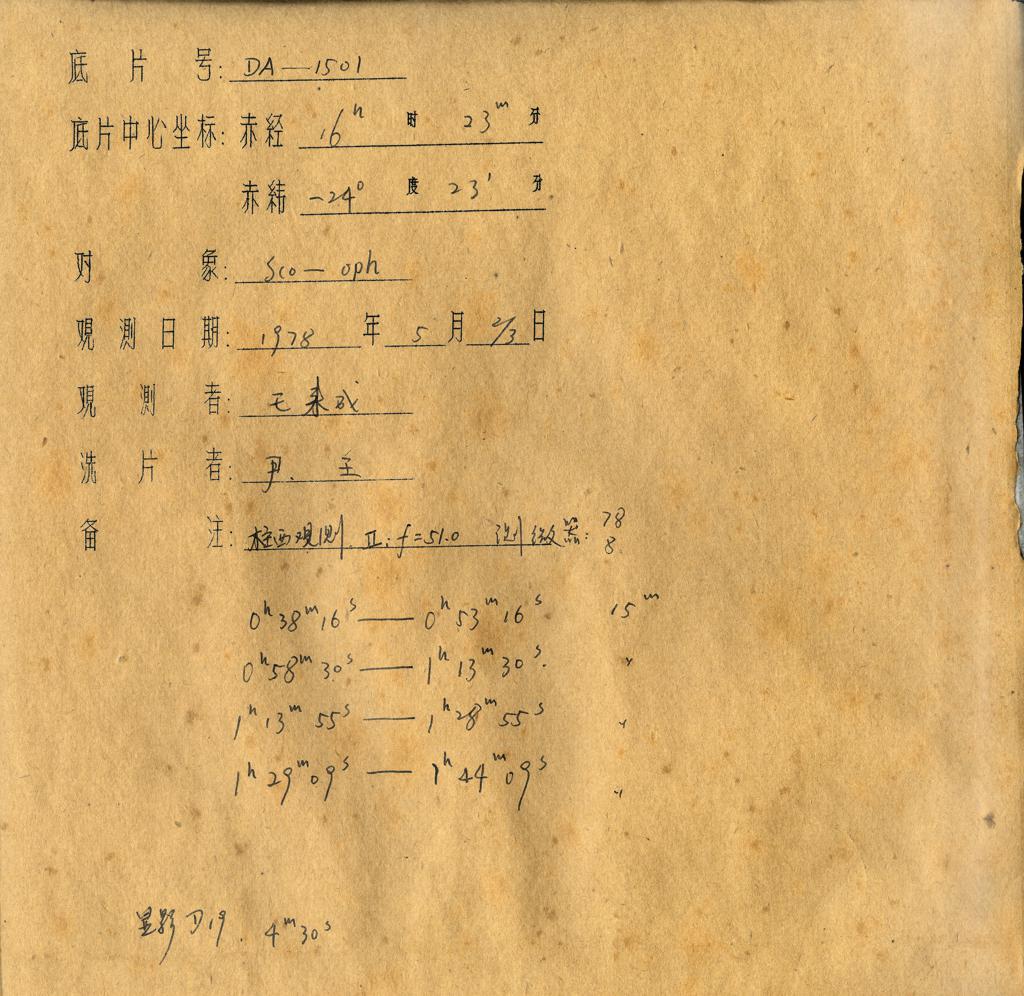 底片号: DA—1501
底片中心坐标: 赤経 16ʰ 时 23ᵐ 分
赤緯 -24° 度 23′ 分
对象: Sco — oph
观測日期: 1978 年 5 月 2/3 日
观測者: 毛 成
洗片者: 尹.
备注: 柱西观测 II: f=51.0 测微器: 78 8
0ʰ38ᵐ16ˢ — 0ʰ53ᵐ16ˢ 15ᵐ
0ʰ58ᵐ30ˢ — 1ʰ13ᵐ30ˢ. 〃
1ʰ13ᵐ55ˢ — 1ʰ28ᵐ55ˢ 〃
1ʰ29ᵐ09ˢ — 1ʰ44ᵐ09ˢ 〃
显影 D19. 4ᵐ30ˢ